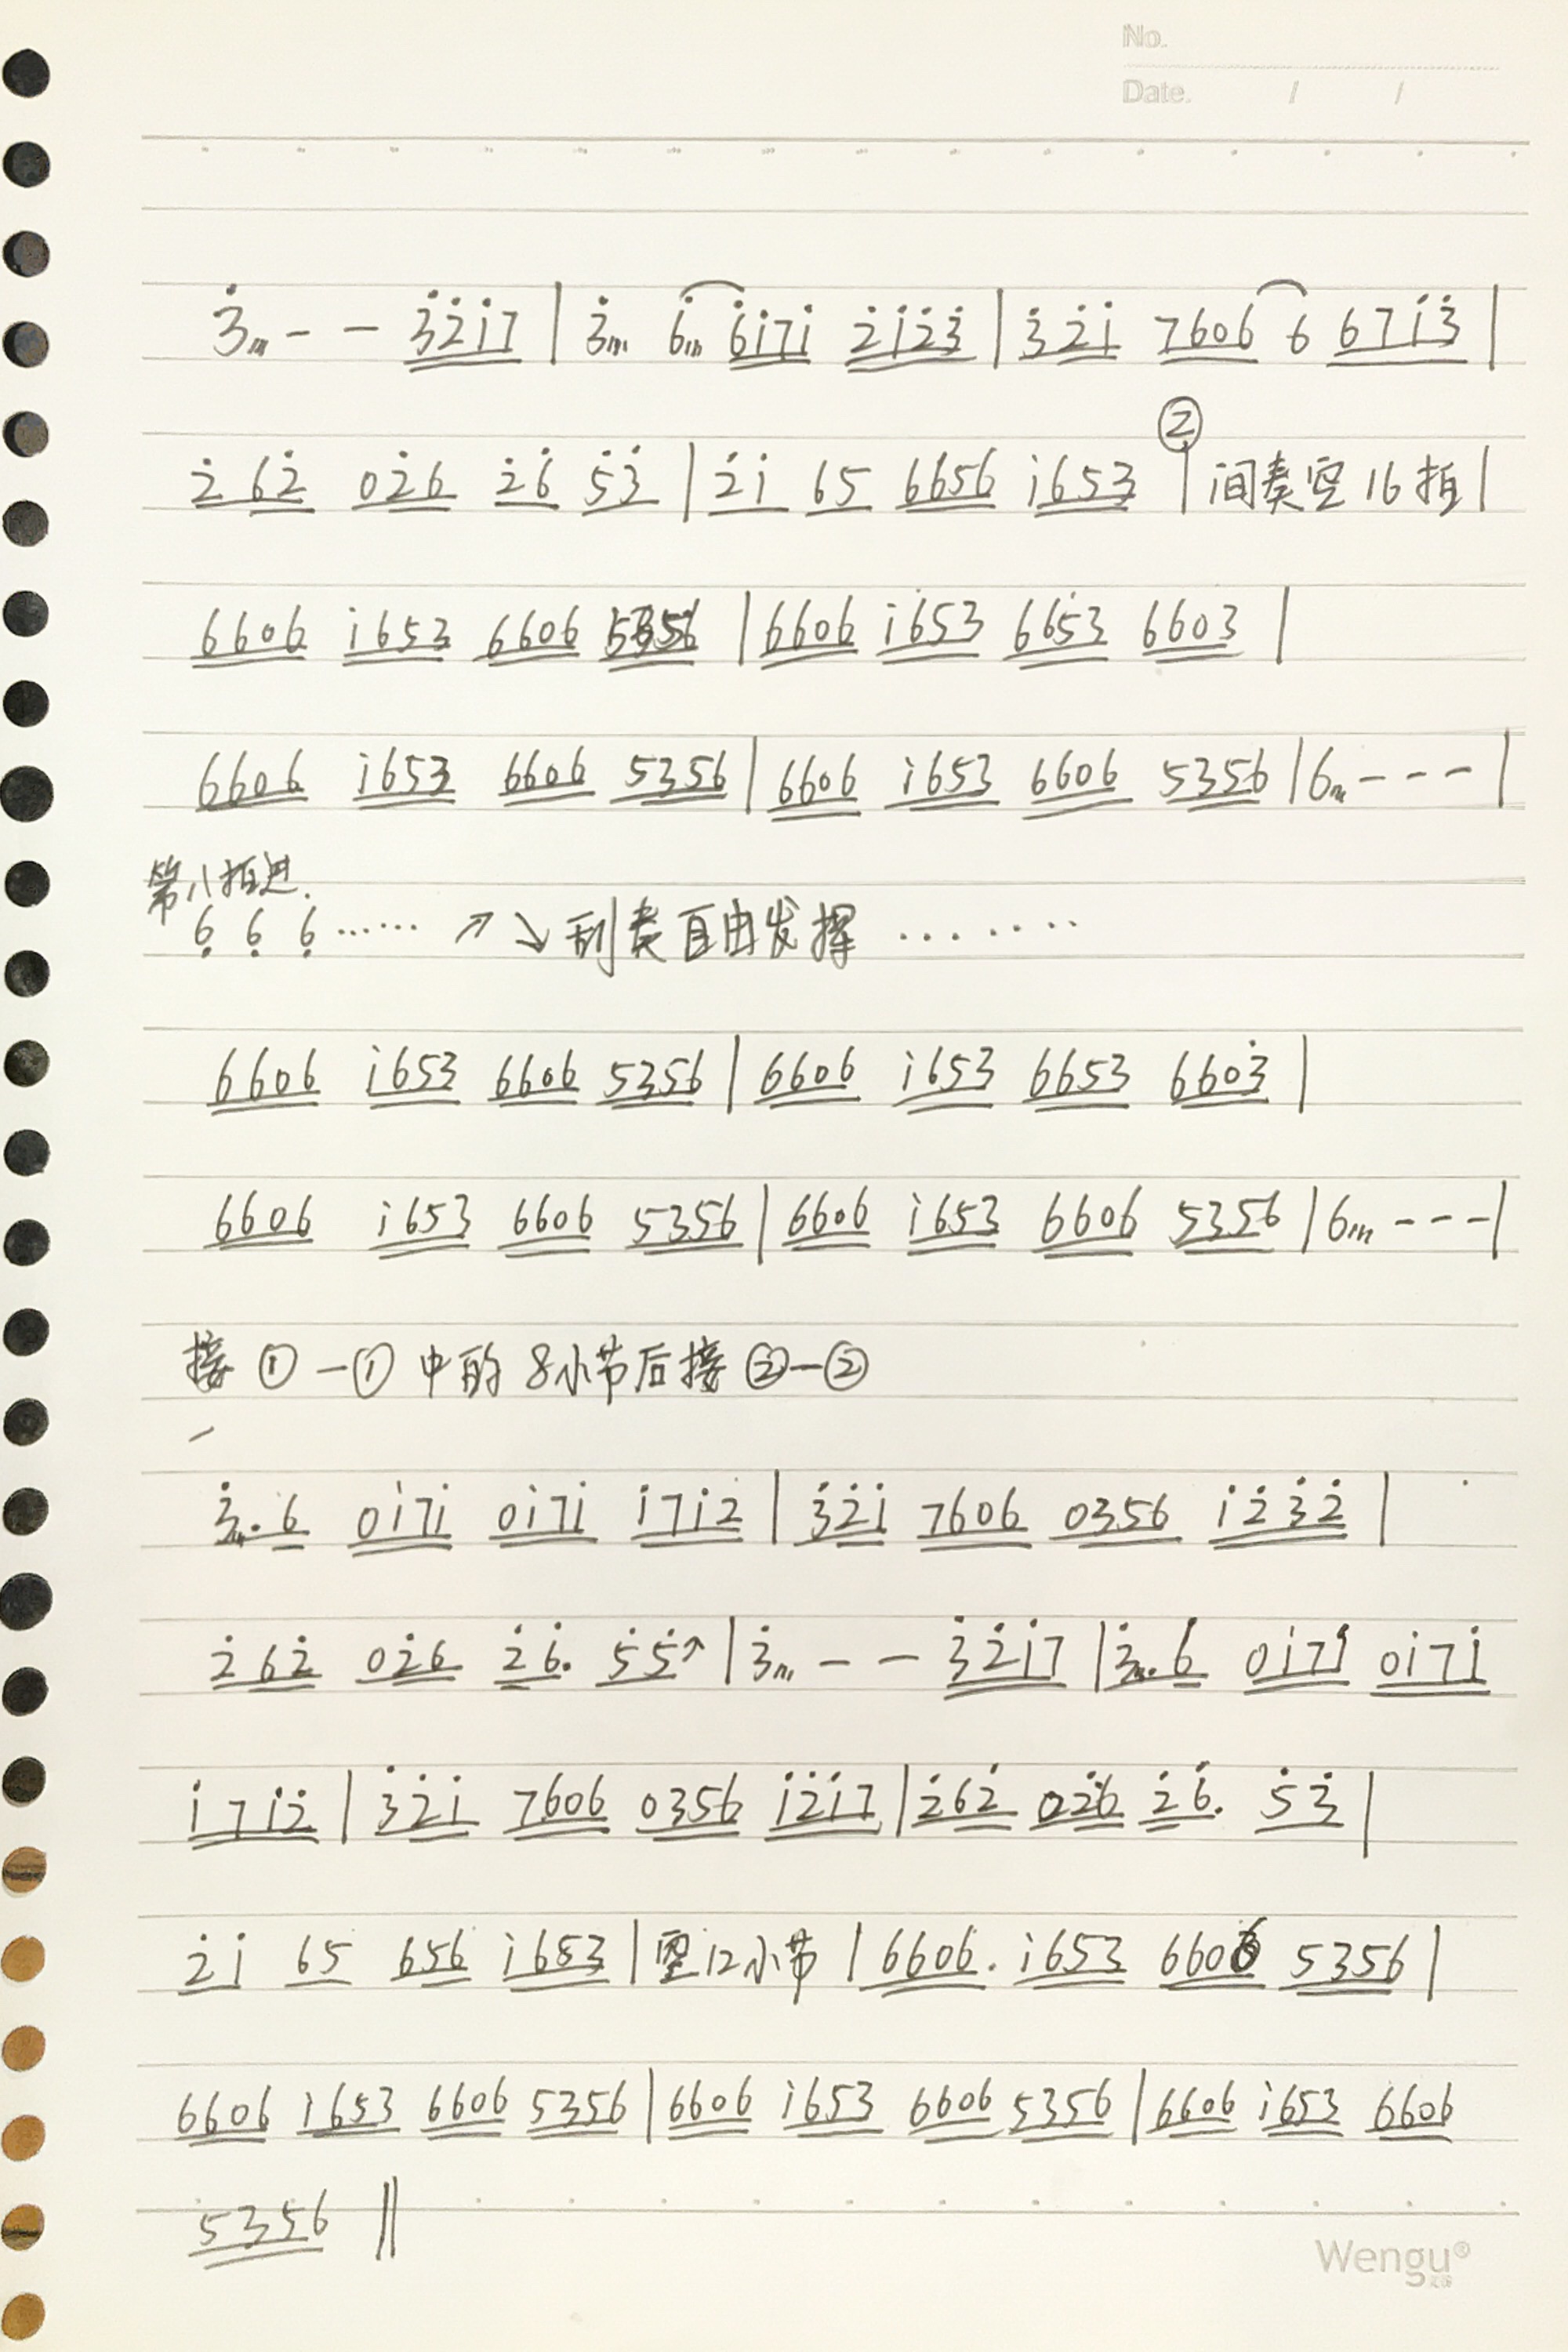 No.
Date. / /
3̇ₘ - - 3̇2̇1̇7 | 3̇ₘ 6̇ₘ 6̇1̇71̇ 2̇1̇2̇3̇ | 3̇2̇1̇ 7606 6 671̇3̇ |
②
2̇62̇ 02̇6 2̇6̇ 5̇3̇ | 2̇1̇ 65 6656 1̇653 | 间奏空16拍 |
6606 1̇653 6606 5356 | 6606 1̇653 6653 6603 |
6606 1̇653 6606 5356 | 6606 1̇653 6606 5356 | 6ₘ - - - |
第八拍进.
6̣ 6̣ 6̣ …… ↗ ↘ 刮奏自由发挥 ........
6606 1̇653 6606 5356 | 6606 1̇653 6653 6603̇ |
6606 1̇653 6606 5356 | 6606 1̇653 6606 5356 | 6ₘ - - - |
接 ① — ① 中的 8小节后接 ② — ②
3̇ₘ. 6 01̇71̇ 01̇71̇ 1̇71̇2̇ | 3̇2̇1̇ 7606 0356 1̇2̇3̇2̇ |
2̇62̇ 02̇6 2̇6̇. 5̇5̇↗ | 3̇ₘ - - 3̇2̇1̇7 | 3̇ₘ. 6 01̇71̇ 01̇71̇
1̇71̇2̇ | 3̇2̇1̇ 7606 0356 1̇2̇1̇7 | 2̇62̇ 02̇6 2̇6̇. 5̇3̇ |
2̇1̇ 65 656 1̇653 | 空12小节 | 6606. 1̇653 6606 5356 |
6606 1̇653 6606 5356 | 6606 1̇653 6606 5356 | 6606 1̇653 6606
5356 ‖
Wengu®